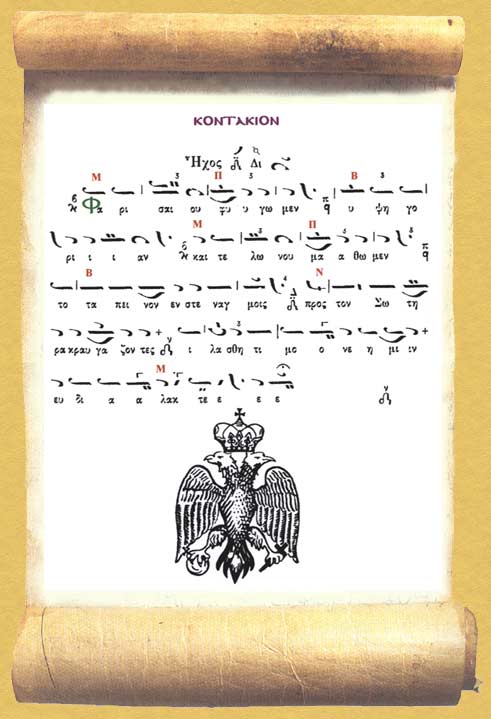 ΚΟΝΤΑΚΙΟΝ
Ἦχος Δι
Μ Π Β
Φα ρι σαι ου φυ υ γω μεν υ ψη γο
Μ Π
ρι ι ι αν και τε λω νου μα α θω μεν
Β Ν
το τα πει νον εν στε ναγ μοις προς τον Σω τη
ρα κραυ γα ζον τες ι λα σθη τι μο ο νε η μι ιν
Μ
ευ δι α α λακ τε ε ε ε